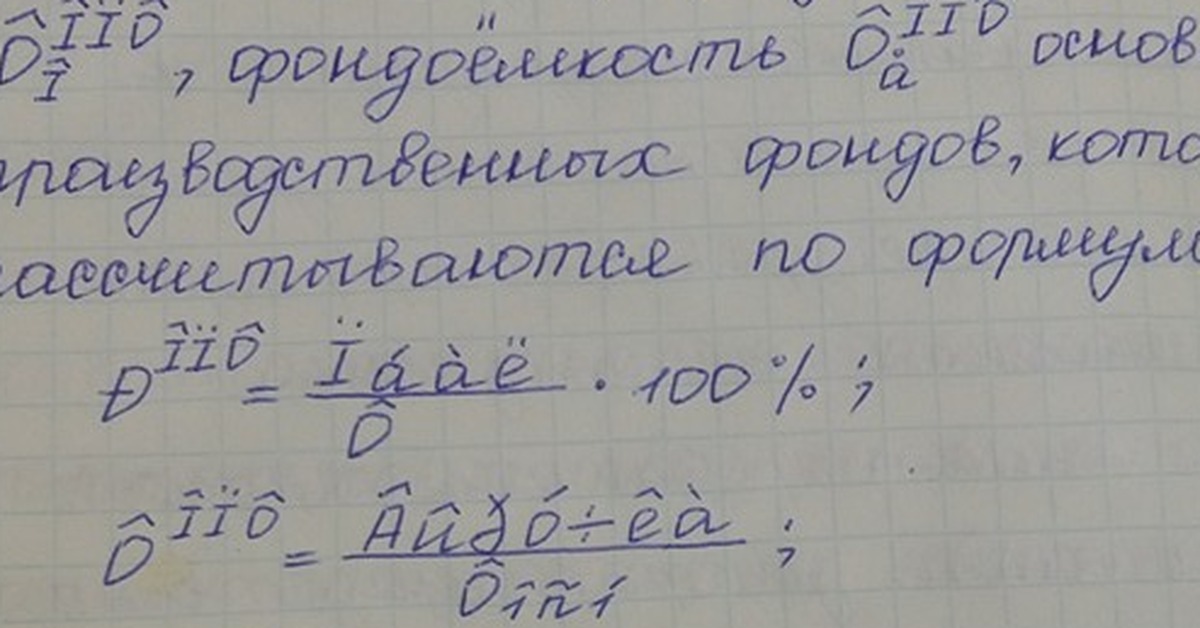 Ô_Î^ÎÏÔ, фондоёмкость Ô_å^ÎÏÔ основ
производственных фондов, кото
рассчитываются по формул
Ð^ÎÏÔ = Ïáàë / Ô · 100%;
Ô^ÎÏÔ = Âûðó÷êà / Ôîñí;